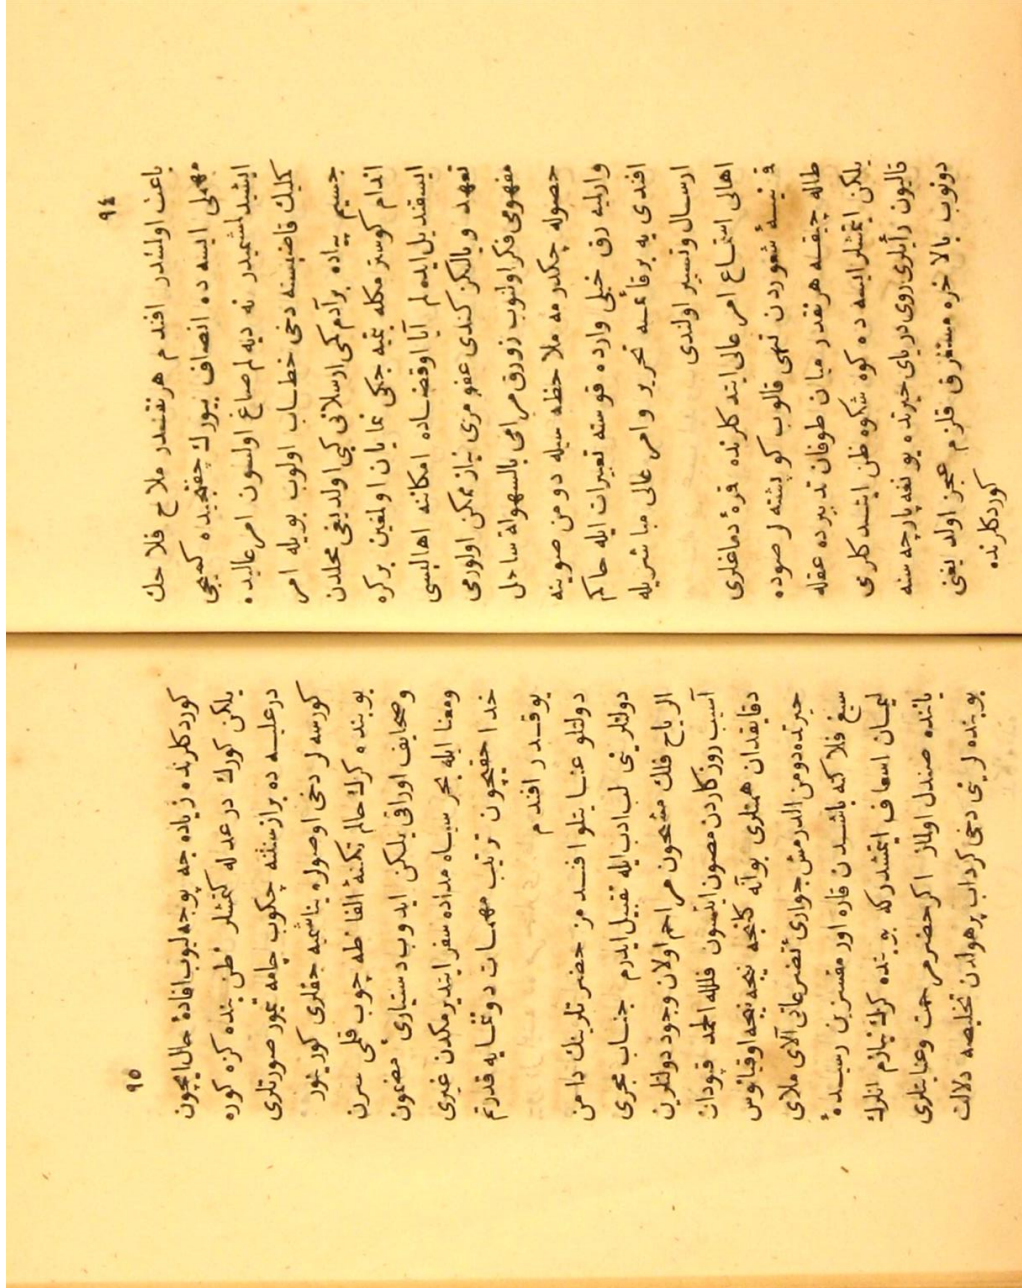 ٩٤
باعث اولنلدر افندم هر نقدر ملاح فلاحك
مهملى ايسه ده انصاف بيورك چفتجيده كميجى
ايشيدلمشميدر نه ديه لم صاغ اولسون امر عاليده
كليك قاضيسنه دخى خطاب اولوب بويله امر
جسيم پياده بر آدم كمى ارسلانى كبى اولديغى محلدن
اندام كوسترمكله بتيه جكى نمايان اولغين بر كره
ايسقنديل ايده لم آيا اوقضاده امكانه اهاليسى
تعهد و يالكز كندى عفومزى نياز ممكن اولورمى
مفهومى فكر اولنوب زورق مرامى بالسهولة ساحل
حصوله چكدرمه ملاحظه سيله دومن صوينه
وارليه رق خيلى وارده قوسته تعبيرات ايله حاكم
افندى يه بر قائمه تحرير و امر عالى مباشريله
ارسال و تسيير اولندى
اهالى استماع امر عالى ايتدكلرنده قره دماغلرى
قنينه شعوردن تهى قالوب كوپشته لر صوده
طاله چيقه هر نقدر ميان طوفان تدبيرده عقله
يلكن ايتمشلر ايسه ده كوه شكوه ظن ايتدكلرى
قاليون رأيلرى روى درياى حيرتده يونغه پارچه سنه
دونوب بالاخره مستغرق قلزم عجز اولديغى
كوردكلرنده
٩٥
كوردكلرنده زياده جه پوجه ليوب افاده حال ايچون
يلكن كورك درعدله كتمشلر ظن بنده كزه كوره
درعليه ده براز سنه چكوب جامه تيمور صورتلرى
كورسه لر دخى اوصوله يناشميه جقلرى كورينور
بو بنده كرك حالم تكنۀ الفاظه چوب قلمى سرن
وصحايف اوراقى يلكن ايدوب دستيارئ مضمون
ومعنا ايله بحر سياه مداده سفر ايتديرمكدن غيرى
خدا حقيچون ترتيب مهمات دوننمايه قدرتم
يوقدر افندم
دولتلو عنايتلو افندمز حضرتلرينك دامن
دولتلرينى لب ادب ايله تقبيل ايدرم جناب مجرى
الرياح فلك مشحون مراحم اولان وجود دولتلرين
آسيب روزكاردن مصون ايتسون فلله الحمد قپودان
دقايقدان همتلرى بو آنه كلنجه نيجه نيجه اوقيانوس
حيرتده دومن الدرمش جوارى تضرعاتى آلاى ملاى
سيغ فلاكته باشدن قاره اورمقسزين رسيدۀ
ليمان اسعاف ايتمشدر كه بو بنده كرك نيازم انلرك
ياننده صندل اولماز اكر حضر مرحمت وعنايتلرى
بو بنده لرينى دخى كرداب پرهولدن تخليصه دلالت